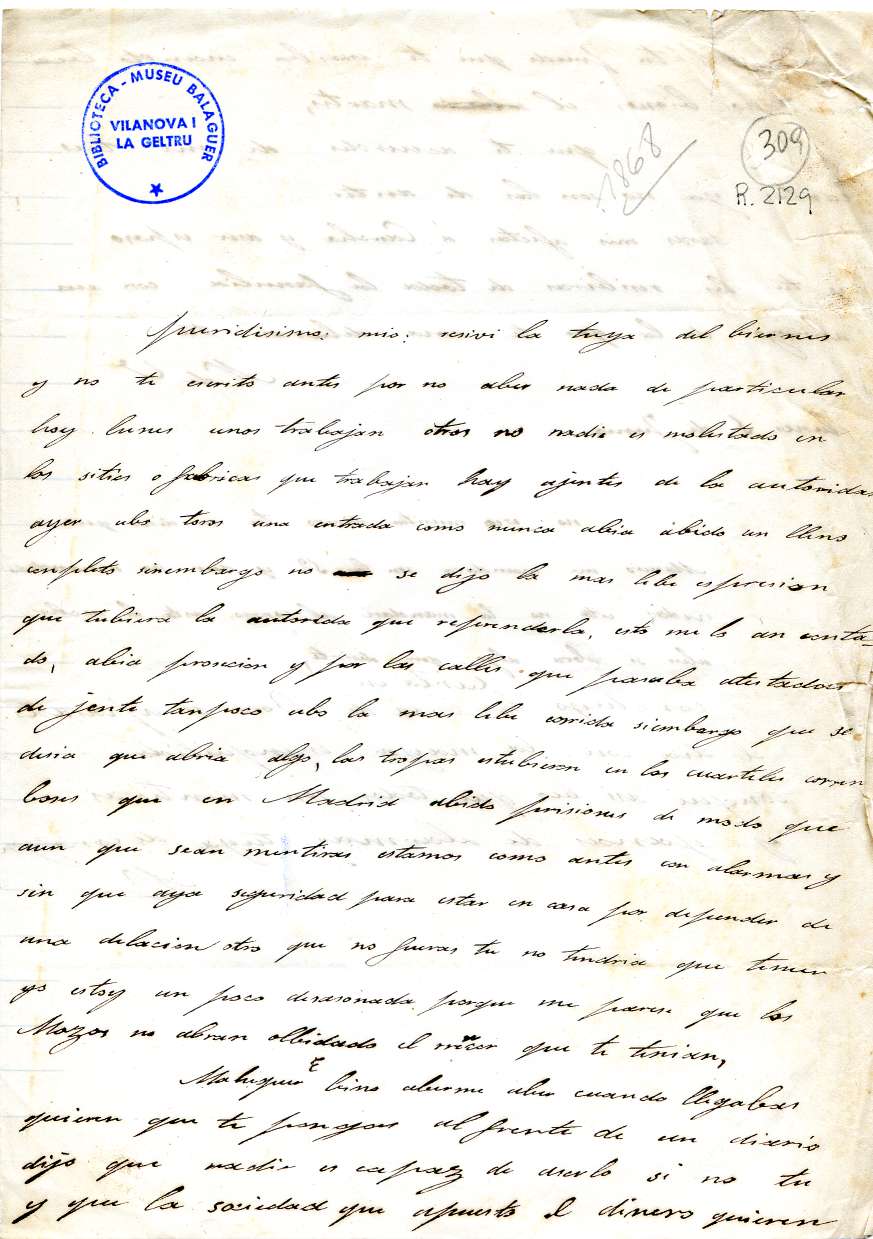 BIBLIOTECA - MUSEU BALAGUER
VILANOVA I
LA GELTRU
1868
309
R. 2129
queridisimo: mio: resivi la tuya del biernes
y no te escrito antes por no aber nada de particular
hoy lunes unos trabajan otros no nadie es molestado en
los sities o fabricas que trabajan hay ajentes de la autoridad
ayer ubo toros una entrada como nunca abia abido un lleno
conpleto sinembargo no se dijo la mas lebe espresion
que tubiera la autorida que reprenderla, esto me lo an conta-
do, abia prosecion y por las calles que pasaba atestadas
de jente tanpoco ubo la mas lebe corrida siembargo que se
desia que abria algo, las tropas estubieron en los cuarteles corren
boses que en Madrid abido prisiones de modo que
aun que sean mentiras estamos como antes con alarmas y
sin que aya seguridad para estar en casa por depender de
una delacion otro que no fueras tu no tendria que temer
yo estoy un poco desasonada porque me parese que los
Mozos no abran olbidado el que te tenian,
bino aberme aber cuando llegabas
quieren que te pongas al frente de un diario
dijo que nadie es capaz de aserlo si no tu
y que la sociedad que apuesto el dinero quieren